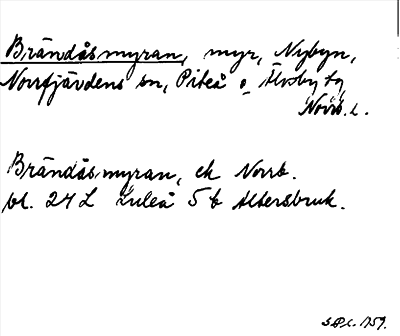 Brändåsmyran, myr, Nybyn,
Norrfjärdens sn, Piteå o. Älvsby tg
Norrb. l.
Brändåsmyran, ek Norrb.
bl. 24 L Luleå 5 b Altersbruk.
1959.